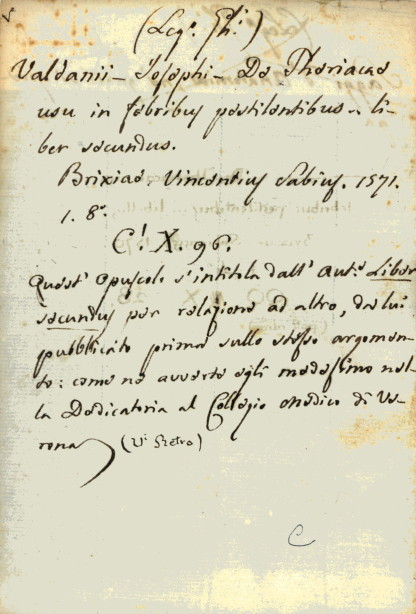 (Leg. Gh.)
Valdanii – Josephi – De Theriacae
usu in febribus pestilentibus – li-
ber secundus.
Brixiae. Vincentius Sabius. 1571.
1. 8°.
C! X. 96?
Quest' opuscolo s'intitola dall' Aut.e Liber
secundus per relazione ad altro, da lui
pubblicato prima sullo stesso argomen-
to: come ne avverte egli medesimo nel-
la Dedicatoria al Collegio Medico di Ve-
rona (Vi Retro)
C